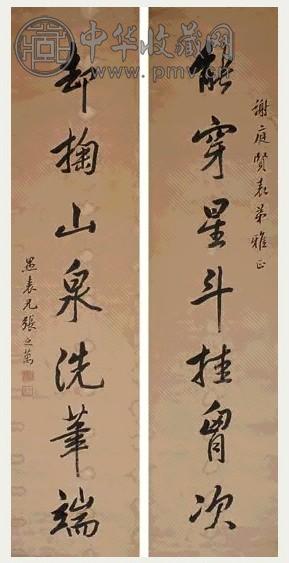 中华收藏网
www.pmv.cn
謝庭賢表弟雅正
能穿星斗挂胷次
却掬山泉洗筆端
愚表兄張之萬